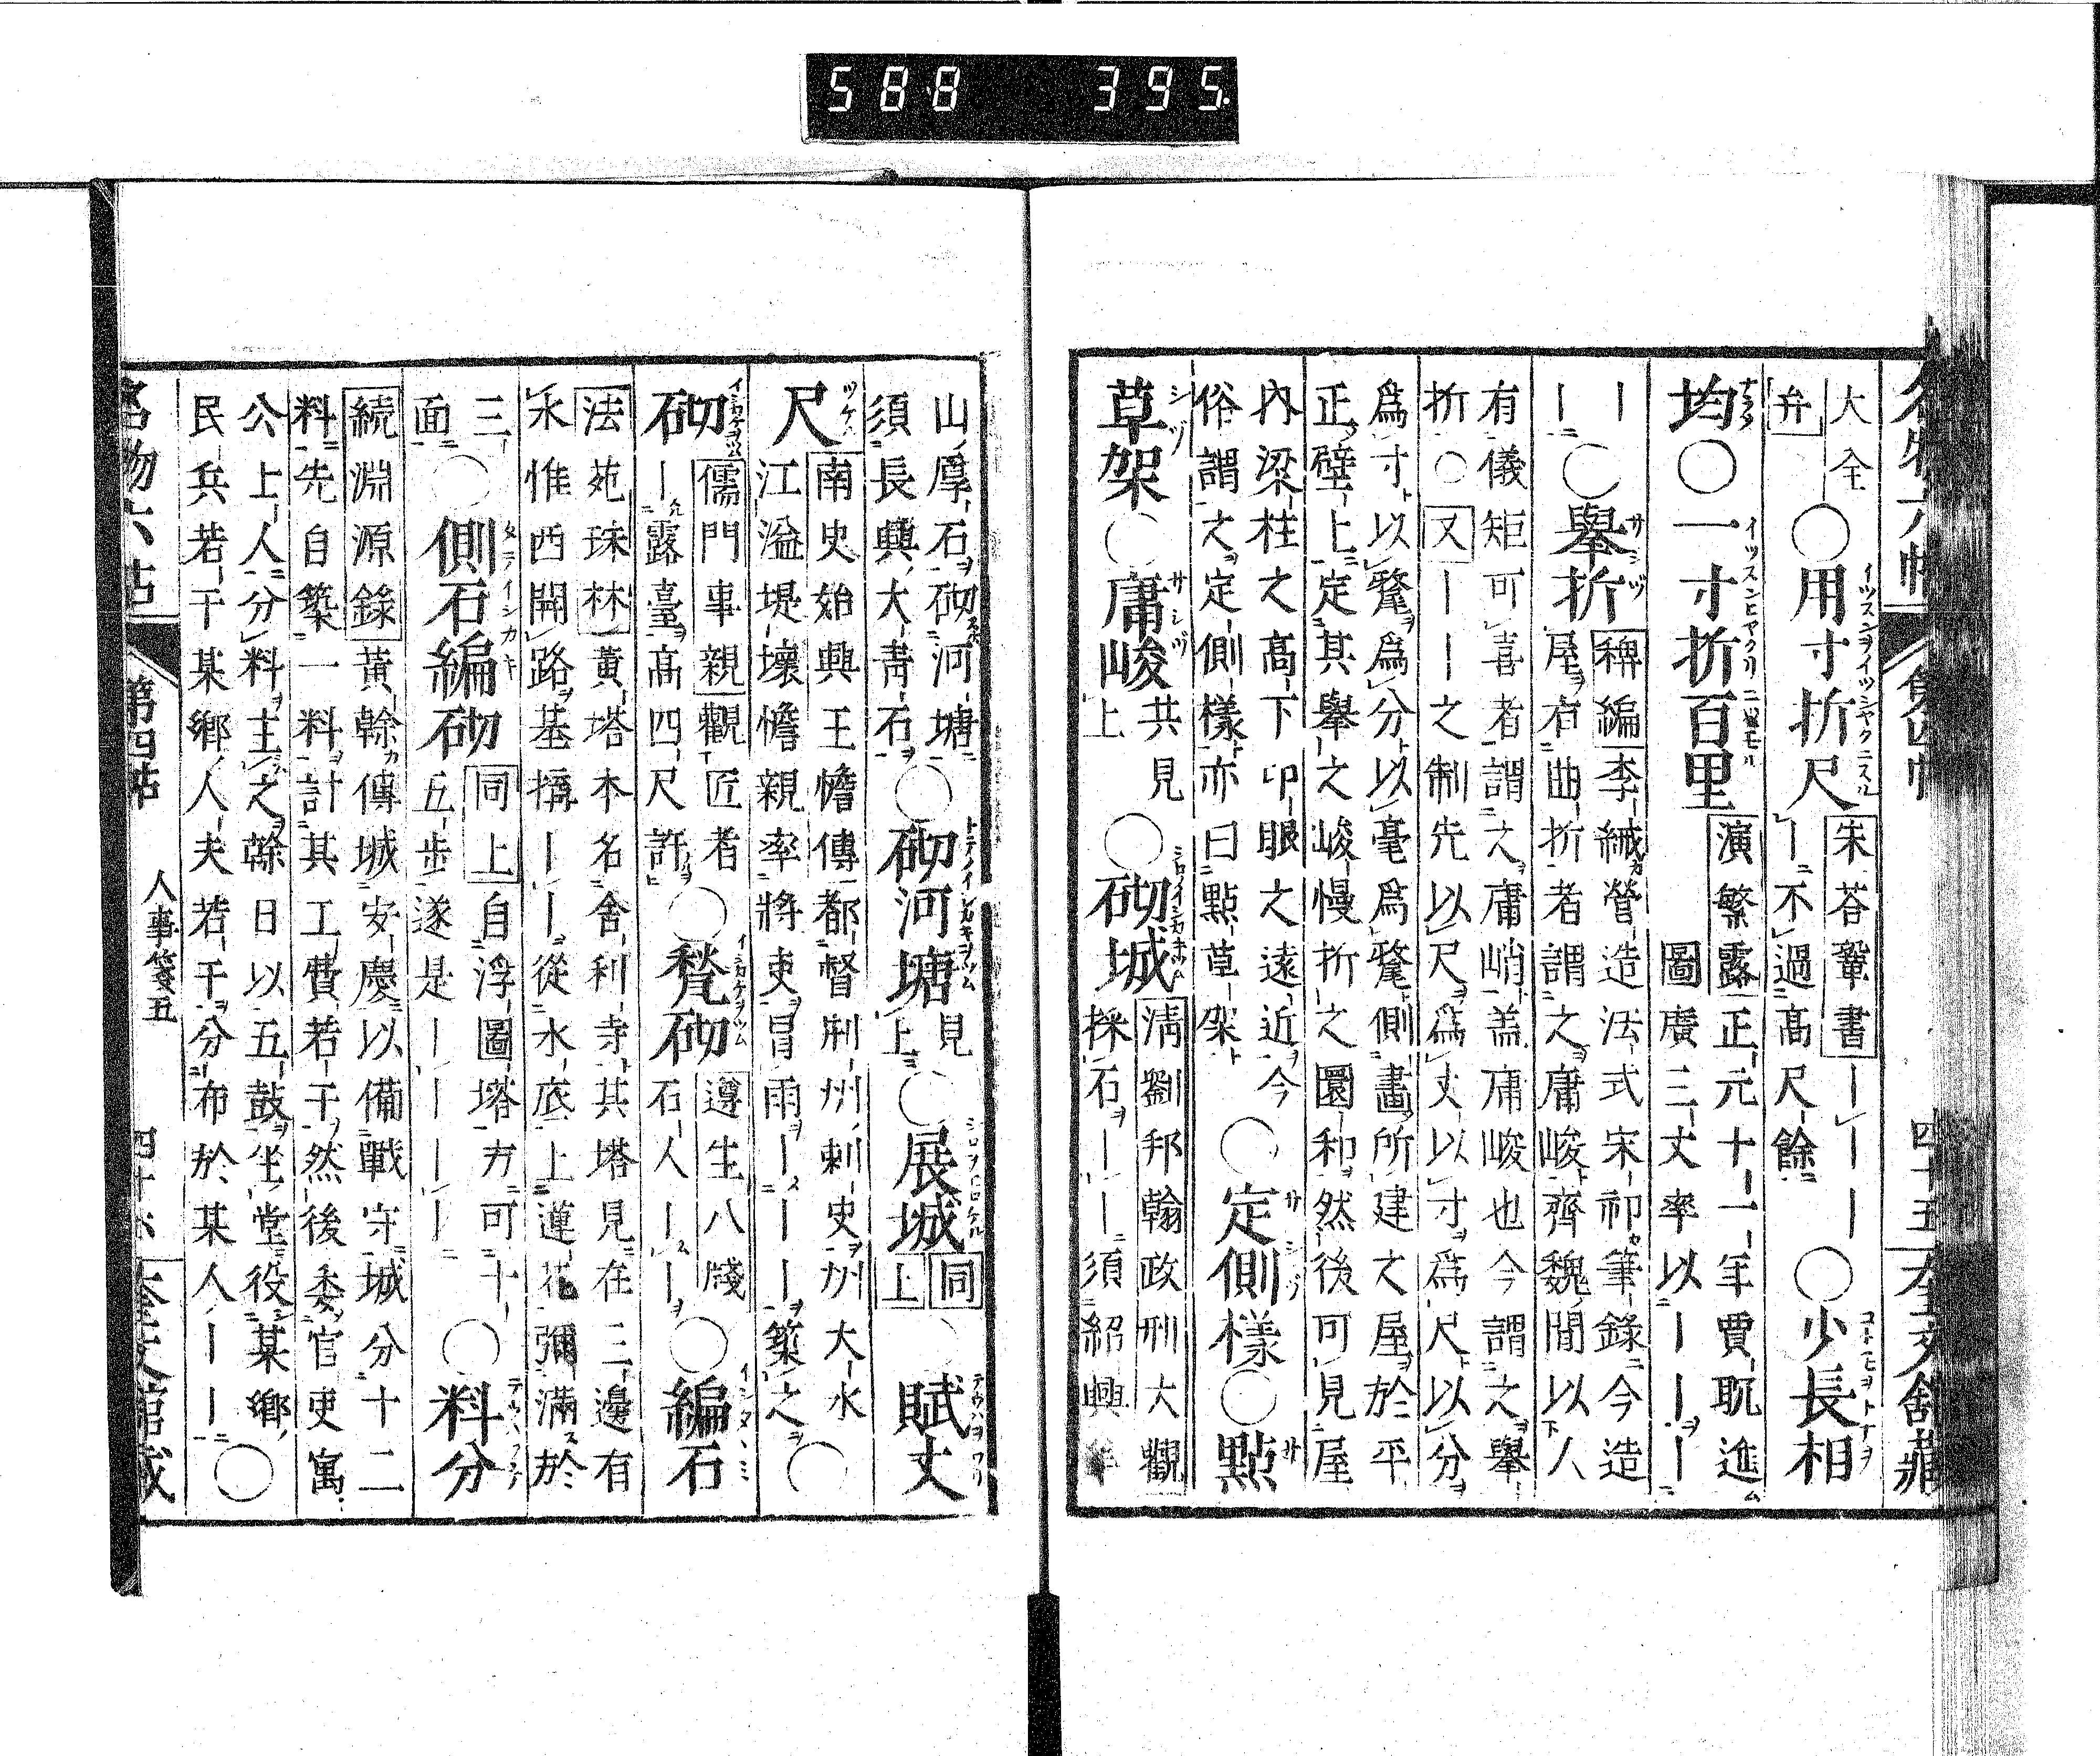 588 395
大全
弁
○用寸折尺
朱荅鞏書｜｜｜
｜不過高尺餘
○少長相
均○一寸折百里
演繁露正元十一年賈耽進
圖廣三丈率以｜｜｜
｜
｜
○舉折
稗編李緘營造法式宋祁筆錄今造
屋有曲折者謂之庸峻齊魏閒以人
有儀矩可喜者謂之庸峭盖庸峻也今謂之舉
折○又｜｜之制先以尺爲丈以寸爲尺以分
爲寸以釐爲分以毫爲釐側畵所建之屋於平
正壁上定其舉之峻慢折之圜和然後可見屋
內梁柱之高下卯眼之遠近今
俗謂之定側樣亦曰點草架
○定側樣○點
草架○庸峻
共見
上
○砌城
淸劉邦翰政刑大觀
採石｜｜須紹興
山厚石砌河塘
須長興大靑石
○砌河塘
見
上
○展城
同
上
○賦丈
尺
南史始興王憺傳都督荆州刺史州大水
江溢堤壞憺親率將吏冒雨｜｜築之
○
砌
儒門事親觀匠者
｜露臺高四尺許
○甃砌
遵生八牋
石人｜｜
○編石
法苑珠林黄塔本名舍利寺其塔見在三邊有
水惟西開路基搆｜｜從水底上蓮花彌滿於
三
面
○側石編砌
同上自浮圖塔方可十
五步遂是｜｜｜
○料分
続淵源錄黄榦傳城安慶以備戰守城分十二
料先自築一料計其工費若干然後委官吏寓
公上人分料主之榦日以五鼓坐堂役某鄉
民兵若干某鄉人夫若干分布於某人｜｜
○
名物六帖
第四帖
人事箋五